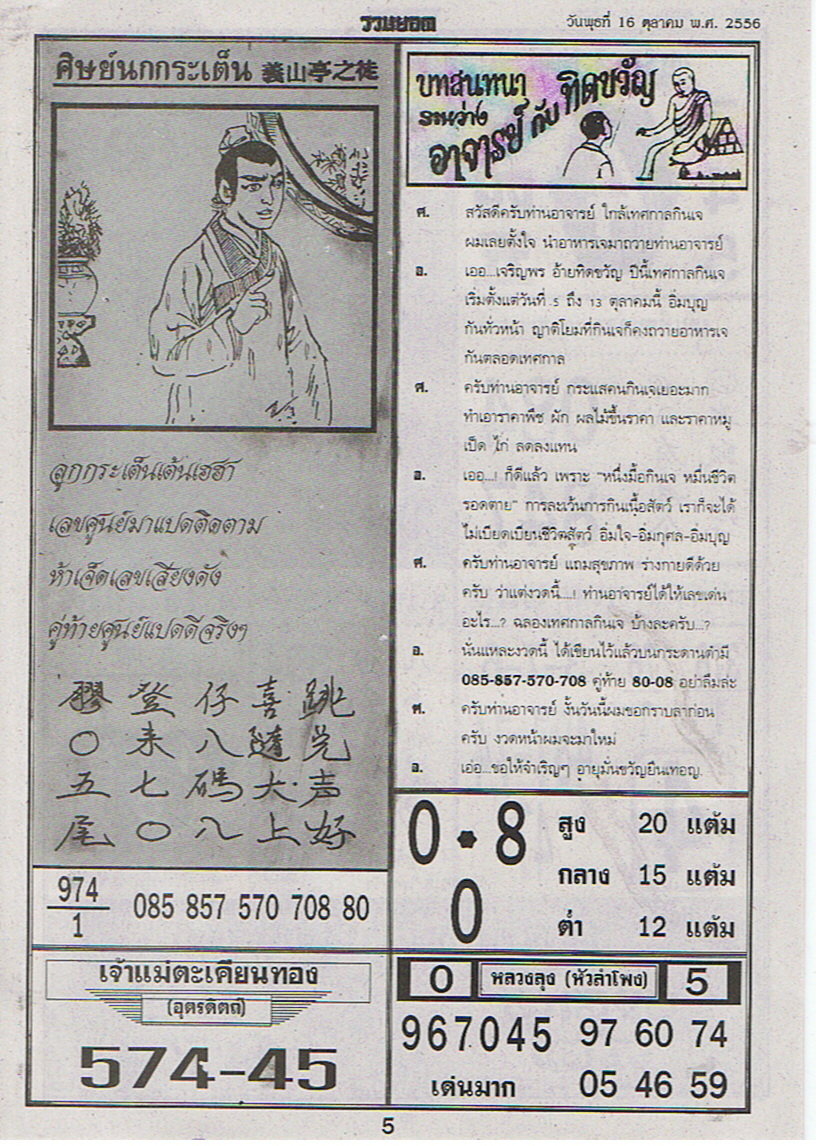 รวมยอด
วันพุธที่ 16 ตุลาคม พ.ศ. 2556
ศิษย์นกกระเต็น 義山亭之徒
ลูกกระเต็นเต้นเฮฮา
เลขศูนย์มาแปดติดตาม
ห้าเจ็ดเลขเสียงดัง
คู่ท้ายศูนย์แปดดีจริงๆ
登 仔 喜 跳
〇 来 八 隨 兑
五 七 碼 大 声
尾 〇 八 上 好
974
1
085 857 570 708 80
เจ้าแม่ตะเคียนทอง
(อุตรดิตถ์)
574-45
บทสนทนา
ระหว่าง
อาจารย์ กับ ทิดขวัญ
ศ. สวัสดีครับท่านอาจารย์ ใกล้เทศกาลกินเจ
ผมเลยตั้งใจ นำอาหารเจมาถวายท่านอาจารย์
อ. เออ...เจริญพร อ้ายทิดขวัญ ปีนี้เทศกาลกินเจ
เริ่มตั้งแต่วันที่ 5 ถึง 13 ตุลาคมนี้ อิ่มบุญ
กันทั่วหน้า ญาติโยมที่กินเจก็คงถวายอาหารเจ
กันตลอดเทศกาล
ศ. ครับท่านอาจารย์ กระแสคนกินเจเยอะมาก
ทำเอาราคาพืช ผัก ผลไม้ขึ้นราคา และราคาหมู
เป็ด ไก่ ลดลงแทน
อ. เออ...! ก็ดีแล้ว เพราะ "หนึ่งมื้อกินเจ หมื่นชีวิต
รอดตาย" การละเว้นการกินเนื้อสัตว์ เราก็จะได้
ไม่เบียดเบียนชีวิตสัตว์ อิ่มใจ-อิ่มกุศล-อิ่มบุญ
ศ. ครับท่านอาจารย์ แถมสุขภาพ ร่างกายดีด้วย
ครับ ว่าแต่งวดนี้....! ท่านอาจารย์ได้ให้เลขเด่น
อะไร...? ฉลองเทศกาลกินเจ บ้างละครับ...?
อ. นั่นแหละงวดนี้ ได้เขียนไว้แล้วบนกระดานดำมี
085-857-570-708 คู่ท้าย 80-08 อย่าลืมล่ะ
ศ. ครับท่านอาจารย์ งั้นวันนี้ผมขอกราบลาก่อน
ครับ งวดหน้าผมจะมาใหม่
อ. เอ่อ...ขอให้จำเริญๆ อายุมั่นขวัญยืนเทอญ.
0 • 8
0
สูง 20 แต้ม
กลาง 15 แต้ม
ต่ำ 12 แต้ม
0 หลวงลุง (หัวลำโพง) 5
967045 97 60 74
เด่นมาก 05 46 59
5